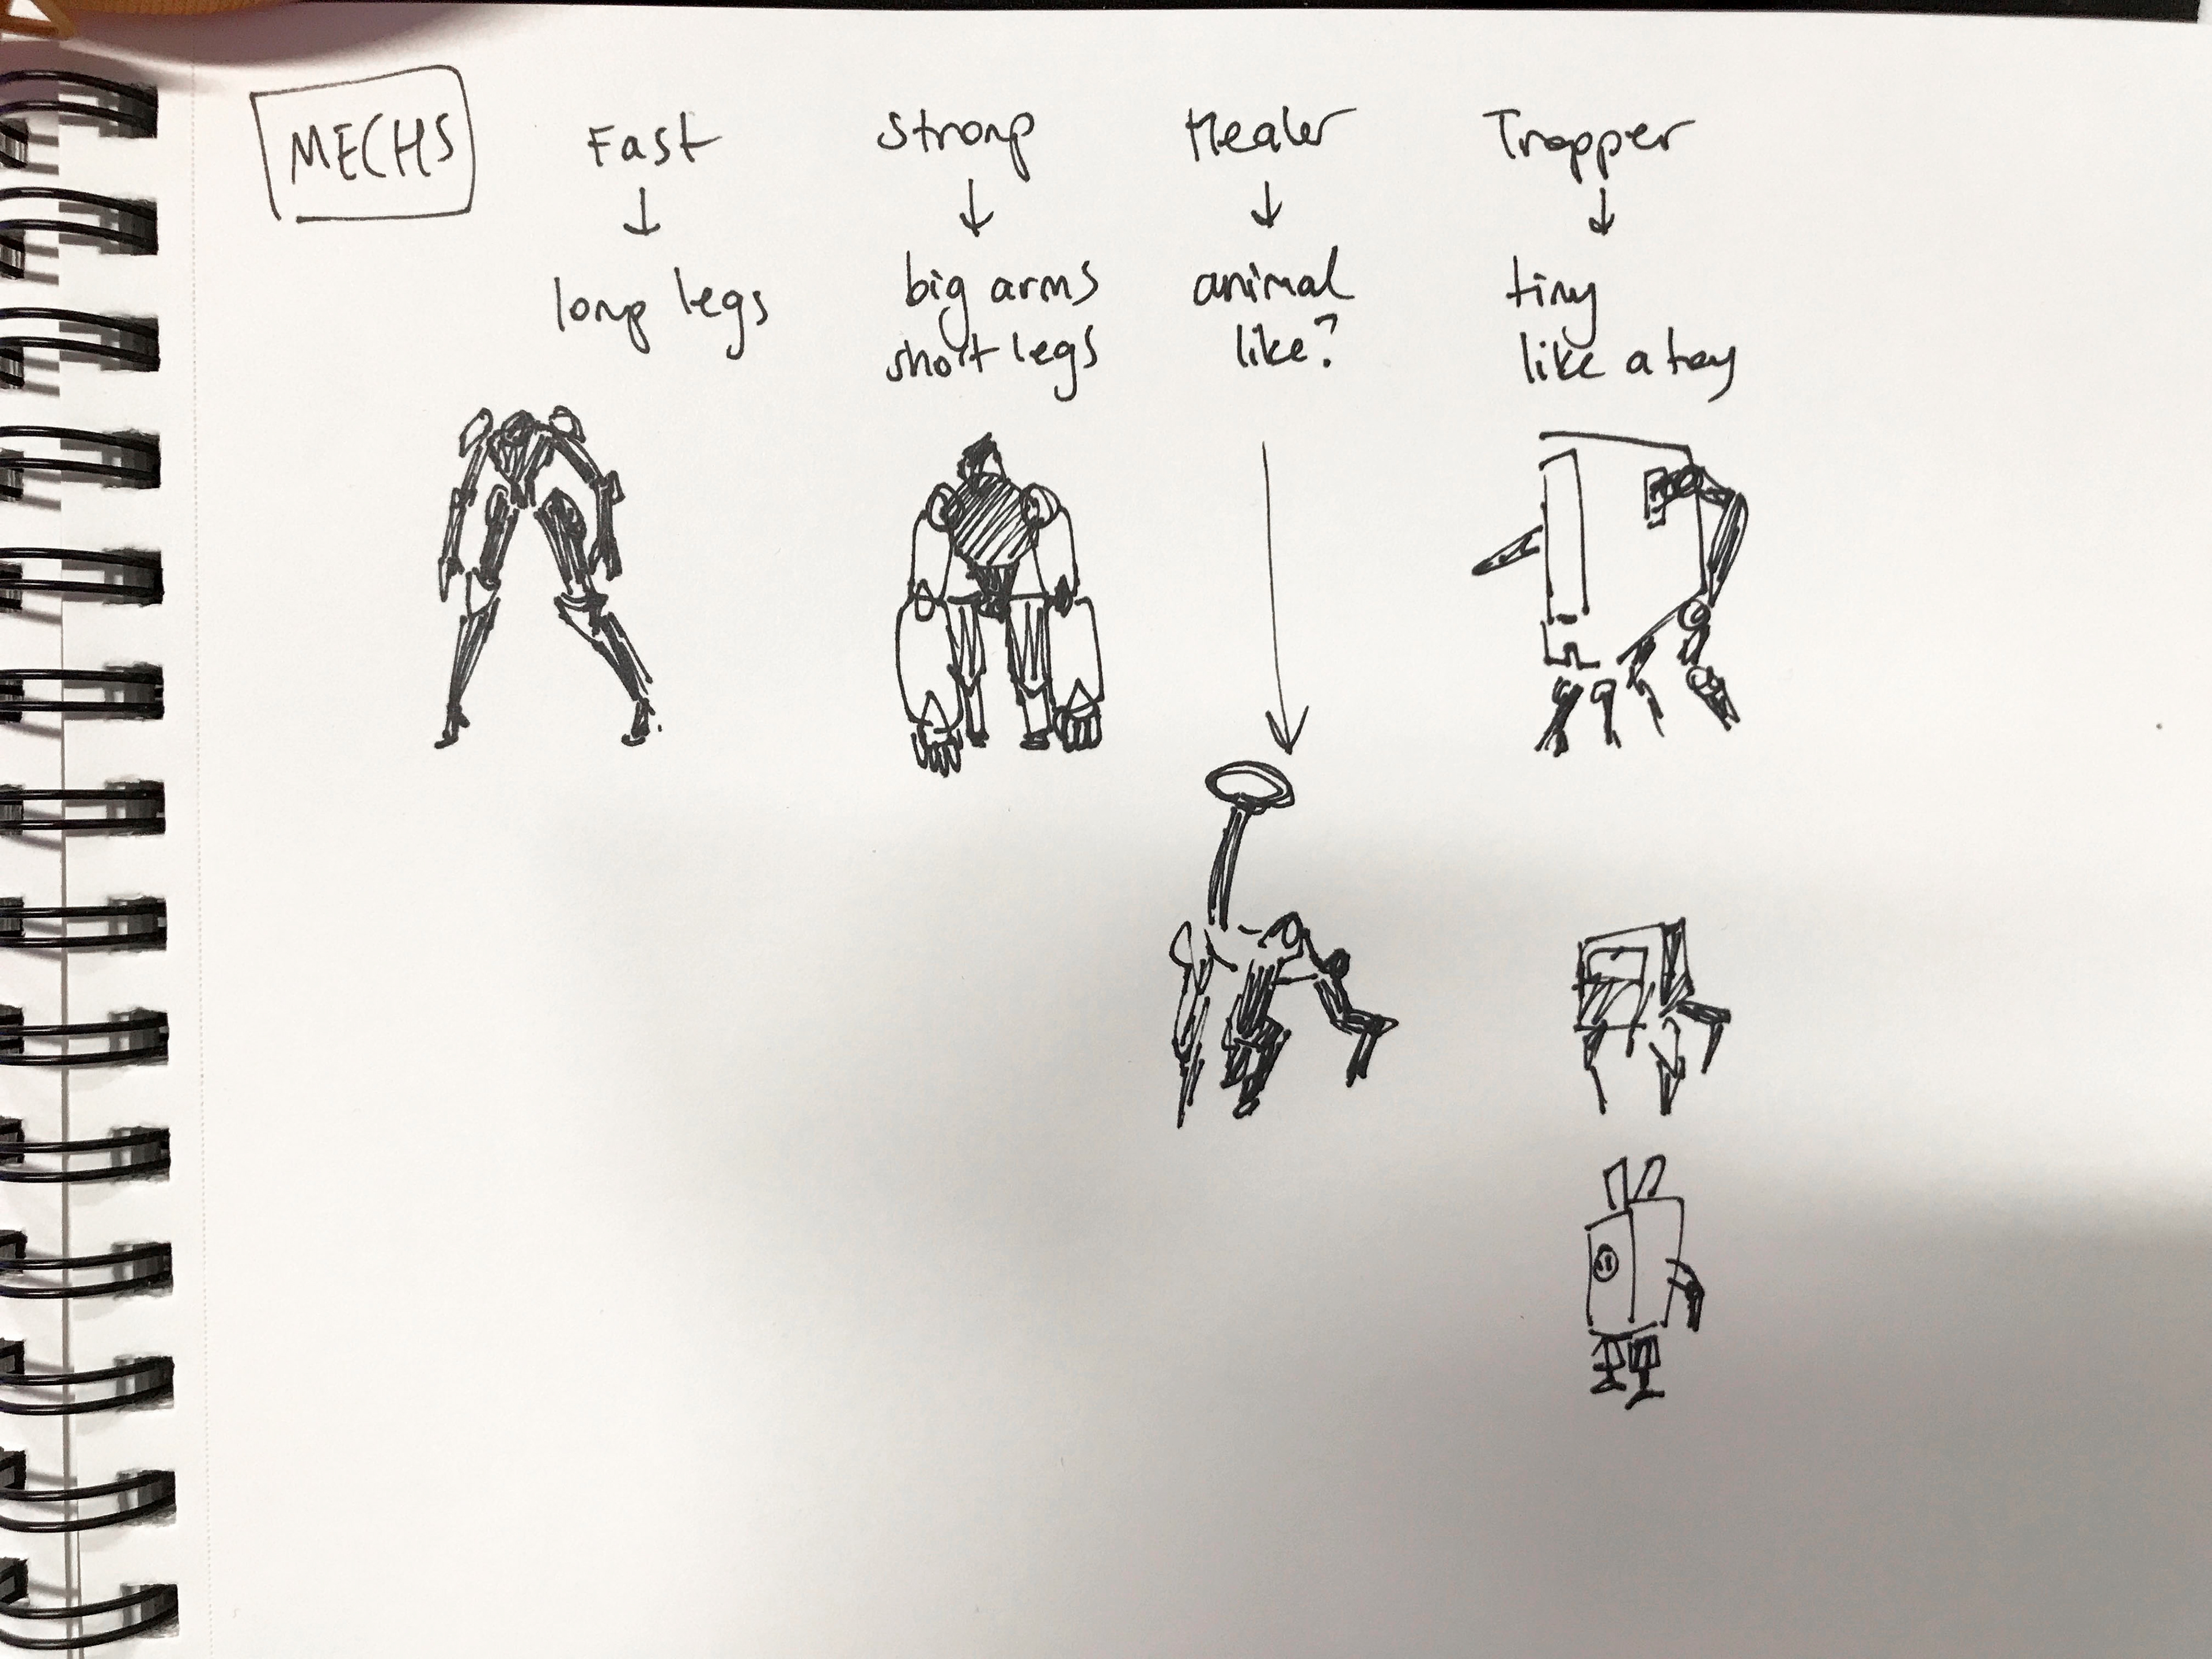 MECHS
Fast
Strong
Healer
Trapper
↓
↓
↓
↓
long legs
big arms
short legs
animal
like?
tiny
like a toy